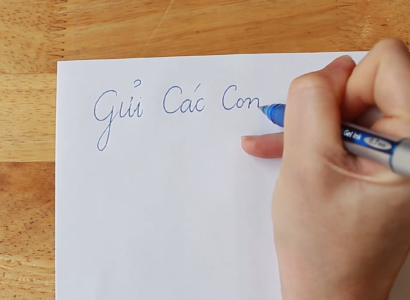 Gửi Các Con
Gel Ink